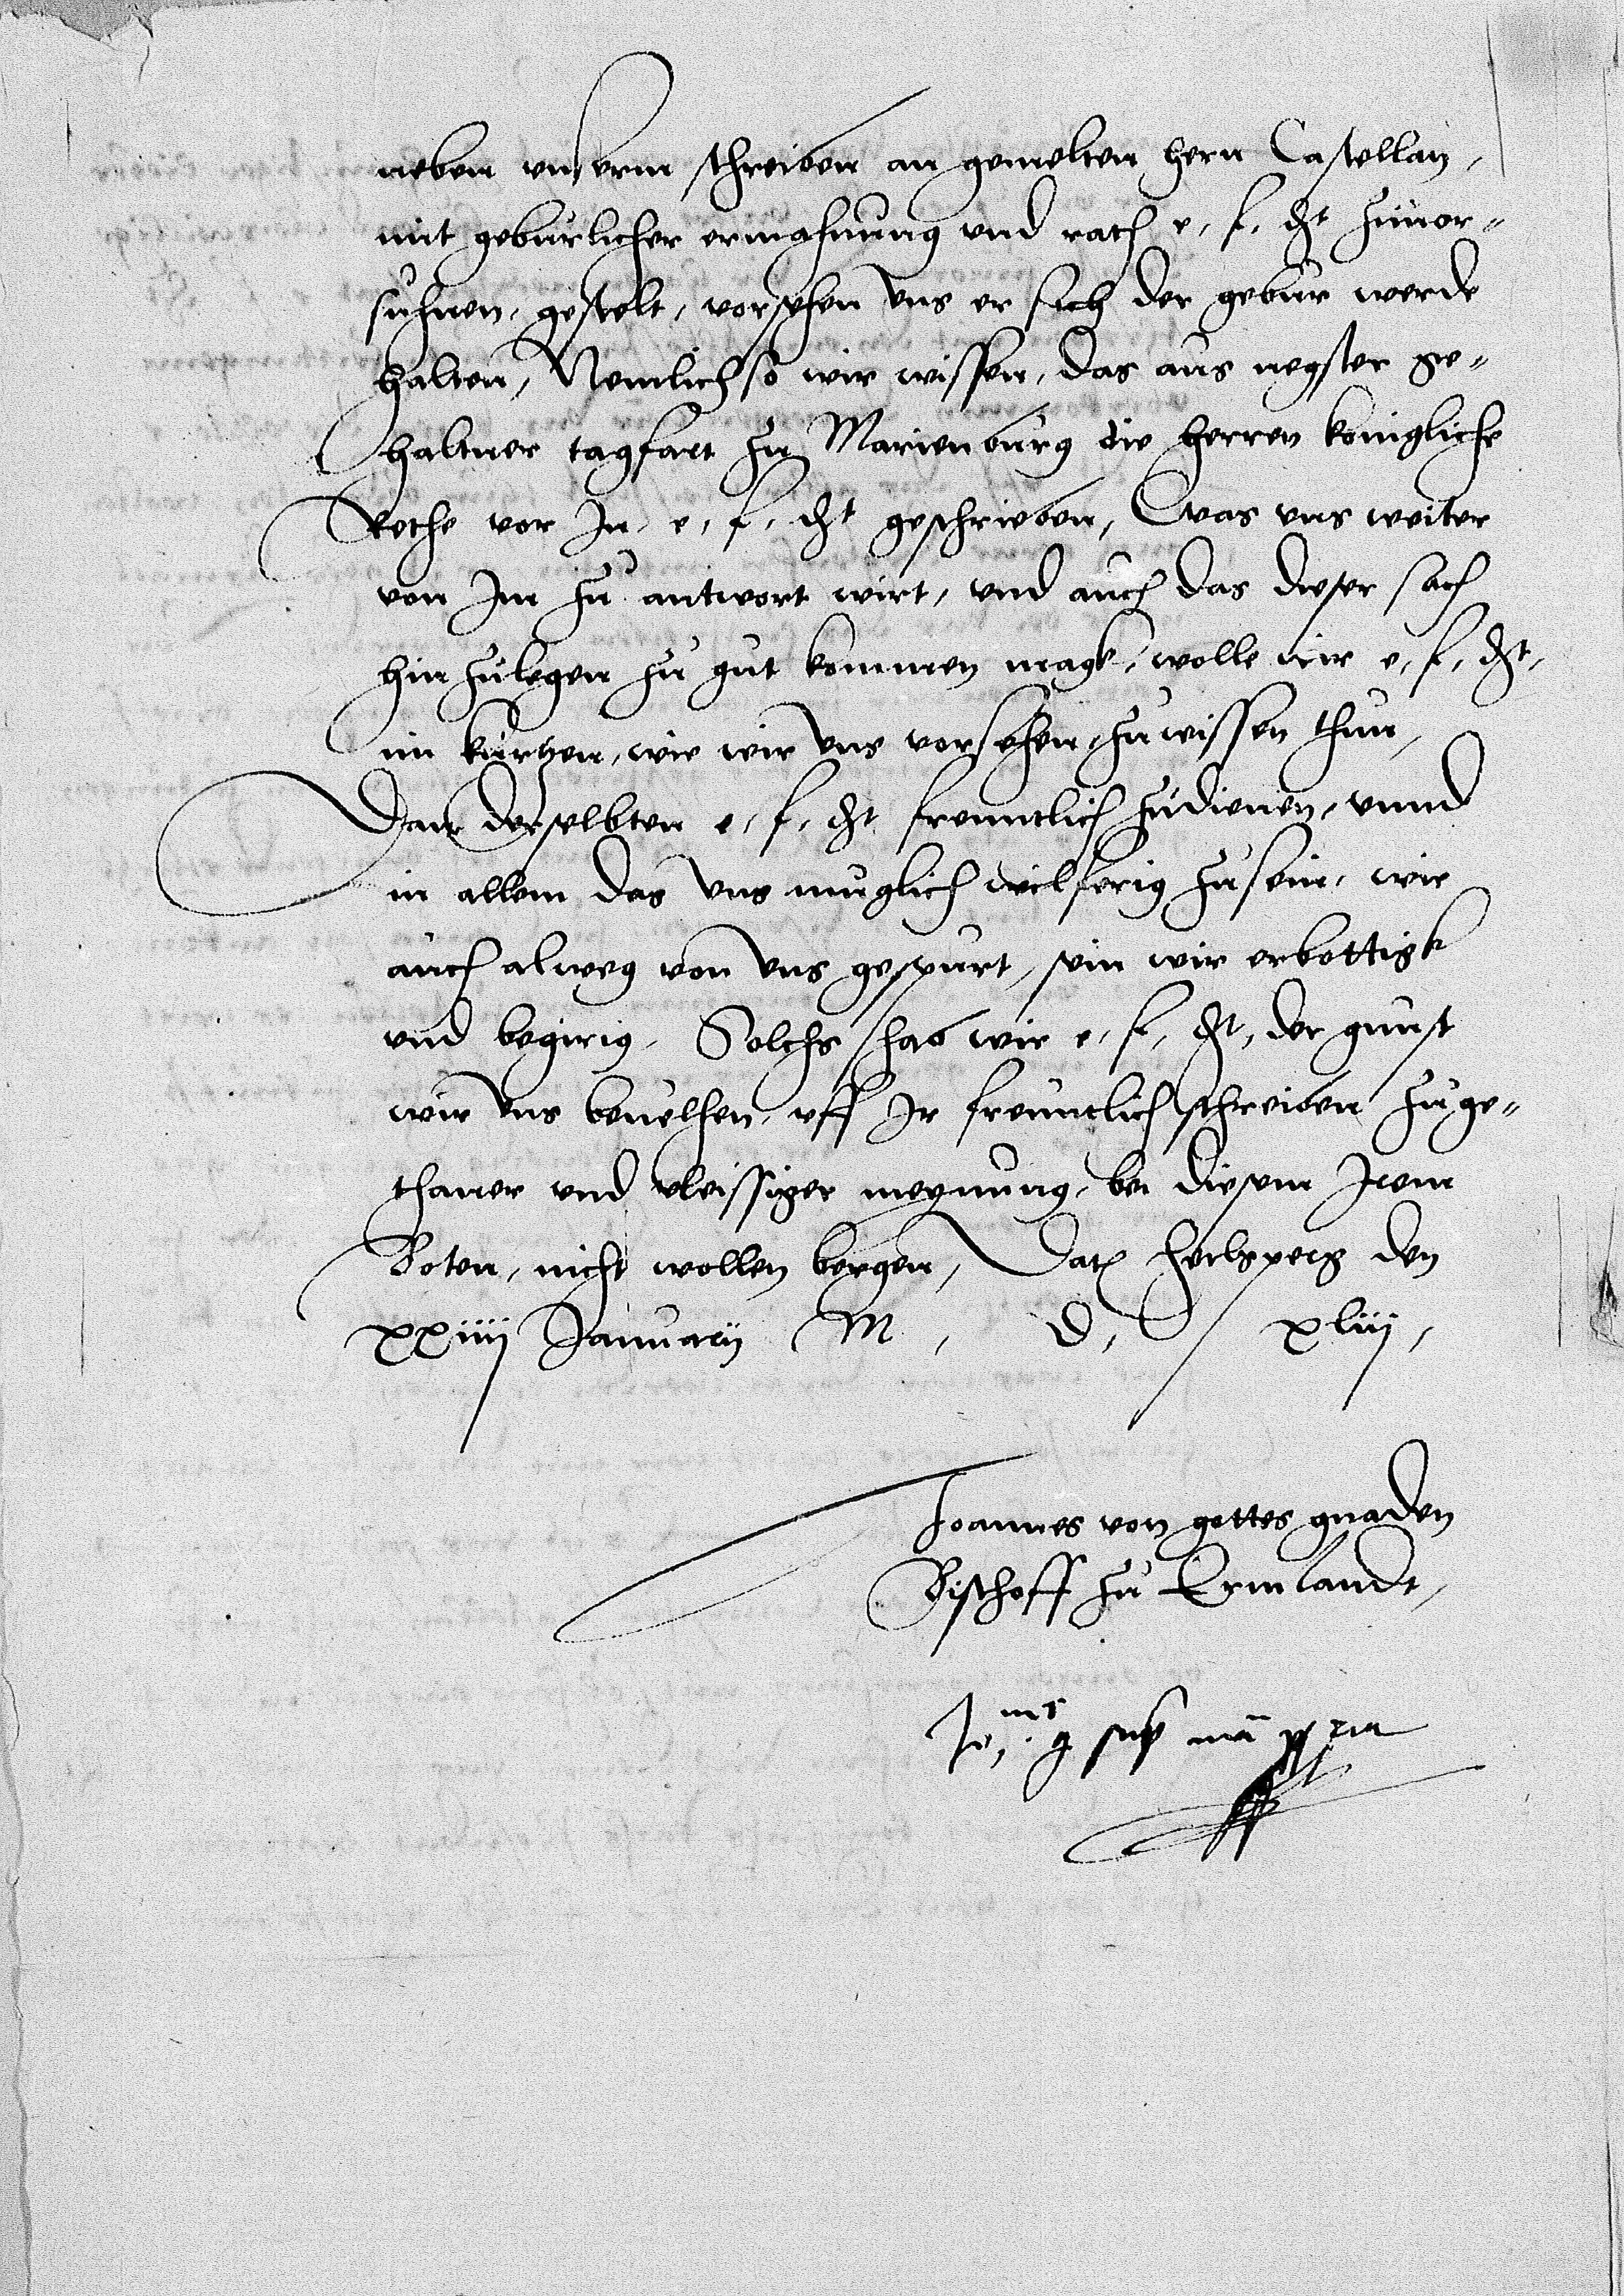 neben unserm schreiben an gemelten hern Castellan,
mit geburlicher ermahnung und rath e, f, dt zuuor-
suhnen, gestelt, vorsehen uns er sich der gebur werde
halten, Nemlich so wir wissen, das aus negster ge-
haltner tagfart zu Marienburg die herren konigliche
Rethe vor In, e, f, dt geschrieben, Was uns weiter
von Im zu antwort wirt, und auch das dieser sach
hin zulegen zu gut kommen magk, wolle wir e, f, dt,
im kurtzen, wie wir uns vorsehen, zuwissen thun,
Dan derselbten e, f, dt freuntlich zudienen, unnd
in allem das uns muglich wilferig zusein, wie
auch alweg von uns gespurt, sein wir erbottigk
und begirig, Solchs hab wir e, f, dt, der gunst
wir uns beuelhen, uff Ir freuntlich schreiben zuge-
thaner und vleissiger meynung, bei diesem Irem
Boten, nicht wollen bergen, Dat Heilsperg den
xxiiij Januarij M, D, xliij,
Joannes von gottes gnaden
Bischoff zu Ermlandt,